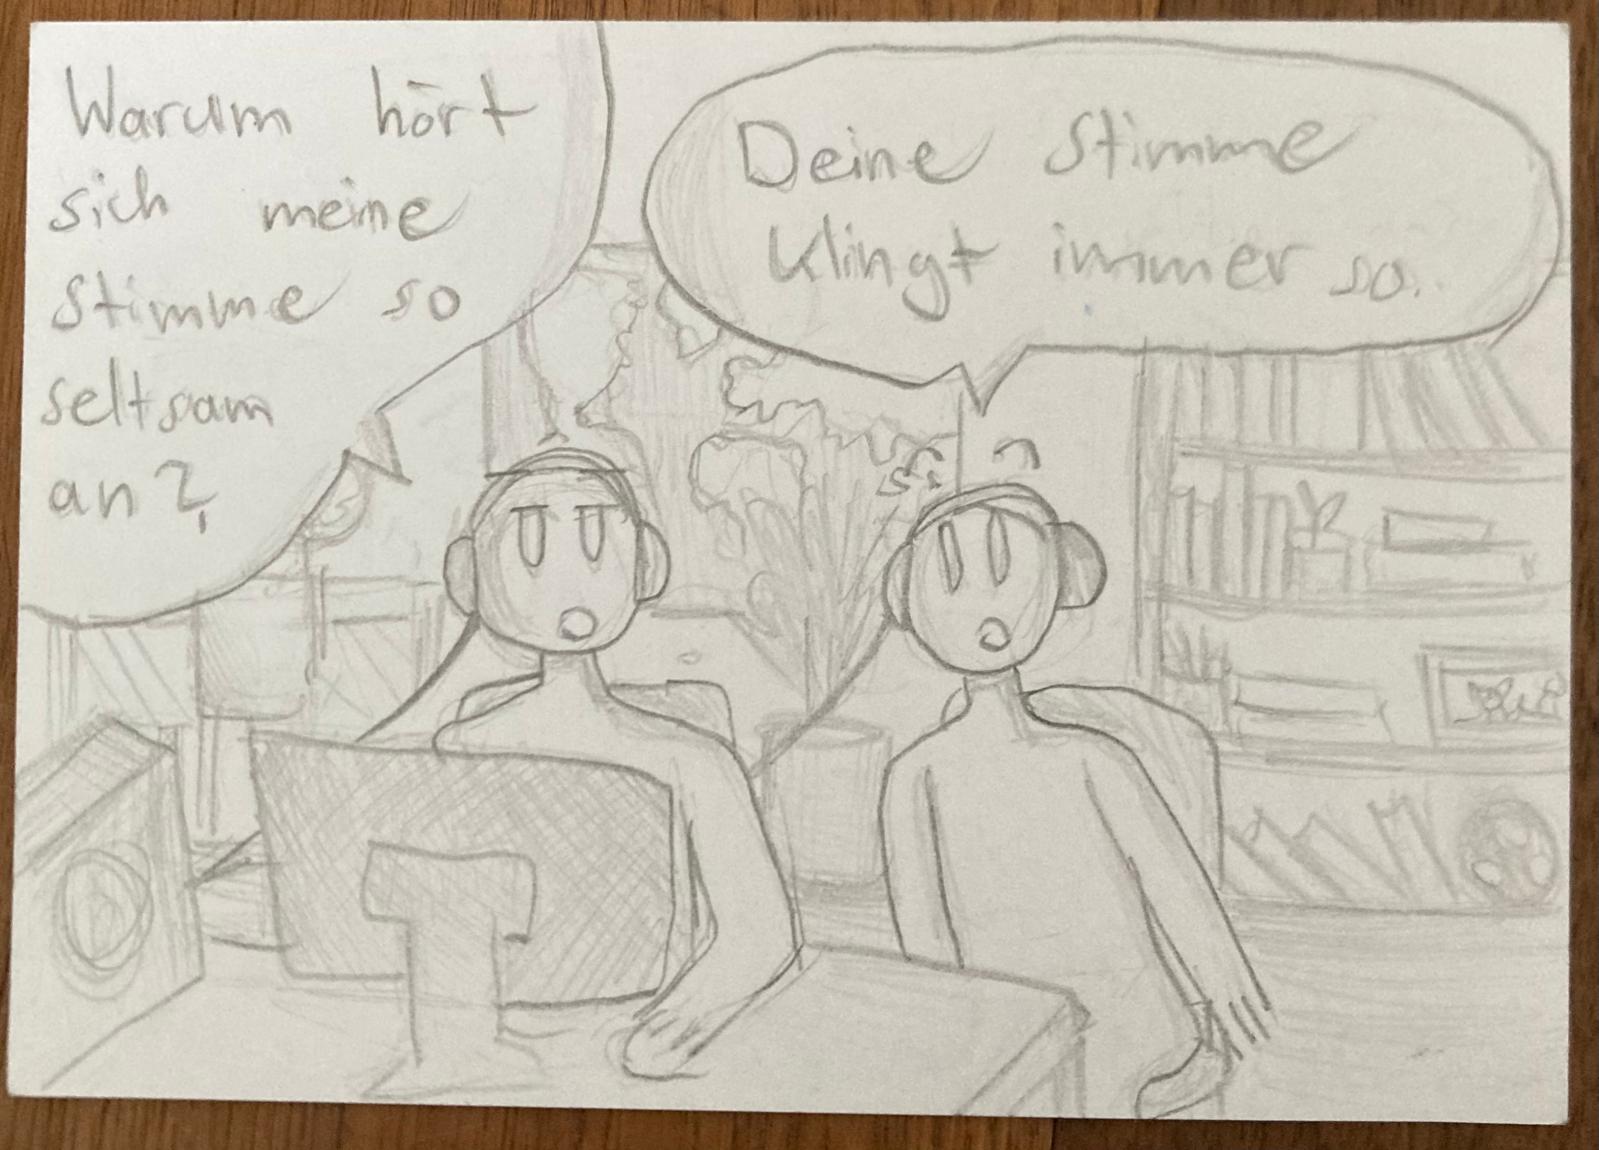 Warum hört
sich meine
Stimme so
seltsam
an?
Deine Stimme
klingt immer so.